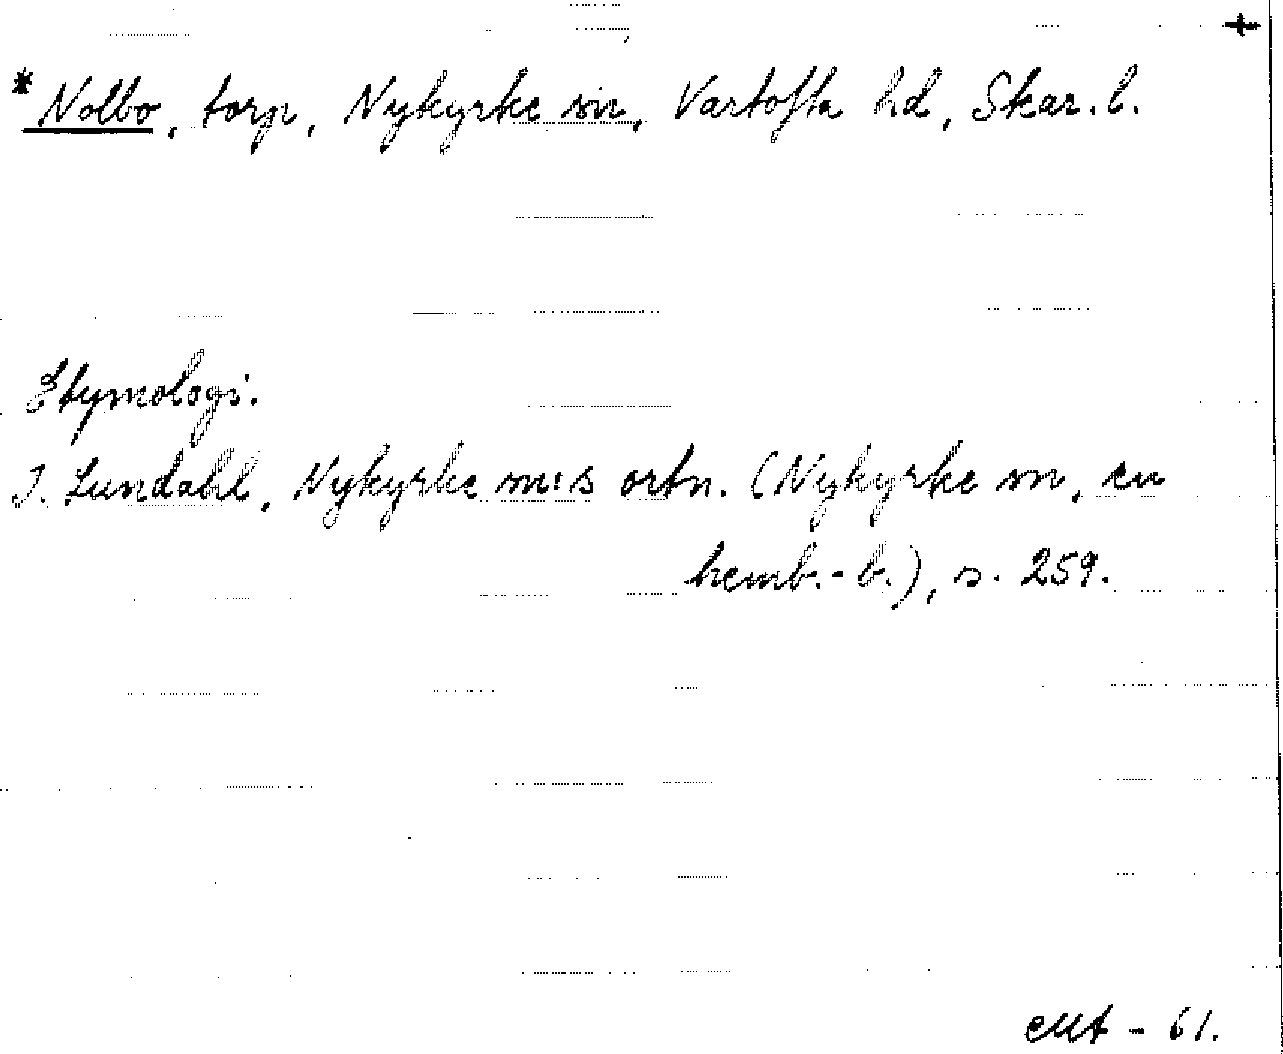 +
* Nolbo, torp, Nykyrke sn, Vartofta hd, Skar. l.
Etymologi.
I. Lundahl, Nykyrke sn:s ortn. (Nykyrke sn, en
hemb.-b.), s. 259.
- 61.